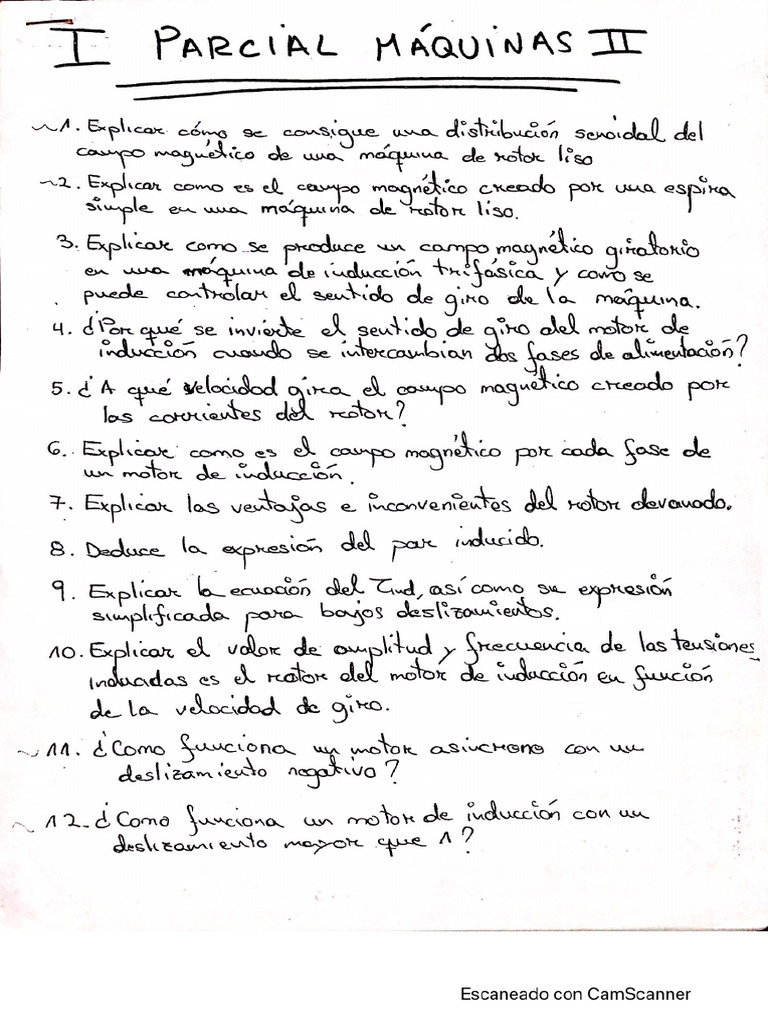 I PARCIAL MÁQUINAS II
1. Explicar cómo se consigue una distribución senoidal del
campo magnético de una máquina de rotor liso
2. Explicar como es el campo magnético creado por una espira
simple en una máquina de rotor liso.
3. Explicar como se produce un campo magnético giratorio
en una máquina de inducción trifásica y como se
puede controlar el sentido de giro de la máquina.
4. ¿Por qué se invierte el sentido de giro del motor de
inducción cuando se intercambian dos fases de alimentación?
5. ¿A qué velocidad gira el campo magnético creado por
las corrientes del rotor?
6. Explicar como es el campo magnético por cada fase de
un motor de inducción.
7. Explicar las ventajas e inconvenientes del rotor devanado.
8. Deduce la expresión del par inducido.
9. Explicar la ecuación del τind, así como su expresión
simplificada para bajos deslizamientos.
10. Explicar el valor de amplitud y frecuencia de las tensiones
inducidas es el rotor del motor de inducción en función
de la velocidad de giro.
11. ¿Como funciona un motor asíncrono con un
deslizamiento negativo?
12. ¿Como funciona un motor de inducción con un
deslizamiento mayor que 1?
Escaneado con CamScanner